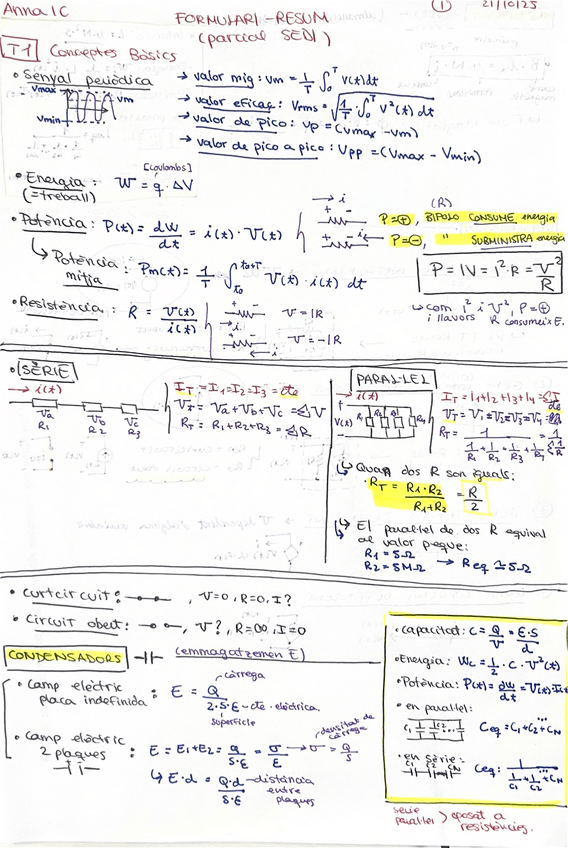 Anna 1C
FORMULARI-RESUM
(parcial SEDI)
1
21/10/25
T1 Conceptes Bàsics
• Senyal periòdica
Vmax
Vm
Vmin
→ valor mig: Vm = 1/T ∫₀ᵀ V(t)dt
→ valor eficaç: Vrms = √(1/T · ∫₀ᵀ V²(t) dt)
→ valor de pico: Vp = (Vmax - Vm)
→ valor de pico a pico: Vpp = (Vmax - Vmin)
• Energia: W = q · ΔV
[Coulombs]
(= treball)
• Potència: P(t) = dW/dt = i(t) · V(t)
→ i
+ -
(R)
P=⊕, BIPOLO CONSUME energia
P=⊖, " SUBMINISTRA energia
↳ Potència mitja: Pm(t) = 1/T ∫ V(t) · i(t) dt
t₀+T
t₀
P = IV = I²·R = V²/R
↳ com I² i V², P=⊕
i llavors R consumeix E.
• Resistència: R = V(t)/i(t)
+ -
→ i
V = IR
+ -
← i
V = -IR
• SÈRIE
→ i(t)
Va Vb Vc
R1 R2 R3
IT = I1 = I2 = I3 = cte
VT = Va + Vb + Vc = ΣV
RT = R1 + R2 + R3 = ΣR
PARAL·LEL
→ i(t)
+
V(t)
-
IT = I1 + I2 + I3 + I4 = ΣI
VT = V1 = V2 = V3 = V4 = cte
RT = 1/(1/R1 + 1/R2 + 1/R3 + 1/R4) = 1/Σ1/R
↳ Quan dos R son iguals:
· RT = R1·R2/(R1+R2) = R/2
↳ El paral·lel de dos R equival
al valor peque:
R1 = 5Ω
R2 = 5MΩ → Req ≅ 5Ω
• curtcircuit: , V=0, R=0, I?
• Circuit obert: , V?, R=∞, I=0
CONDENSADORS (emmagatzemen E)
• Camp elèctric
placa indefinida : E = Q/(2·S·ε)
càrrega
cte. elèctrica.
superfície
• Camp elèctric
2 plaques : E = E1 + E2 = Q/(S·ε) = σ/ε → σ = Q/S
densitat de càrrega
↳ E·d = Q·d/(S·ε)
distància entre plaques
• Capacitat: C = Q/V = ε·S/d
• Energia: Wc = 1/2 · C · V²(t)
• Potència: P(t) = dW/dt = V(t)·I
• en paral·lel:
C1 C2 ... CN
Ceq = C1 + C2 + ... CN
• en sèrie:
C1 C2 CN
Ceq: 1/(1/C1 + 1/C2 + ... 1/CN)
sèrie
paral·lel } oposat a
resistències.